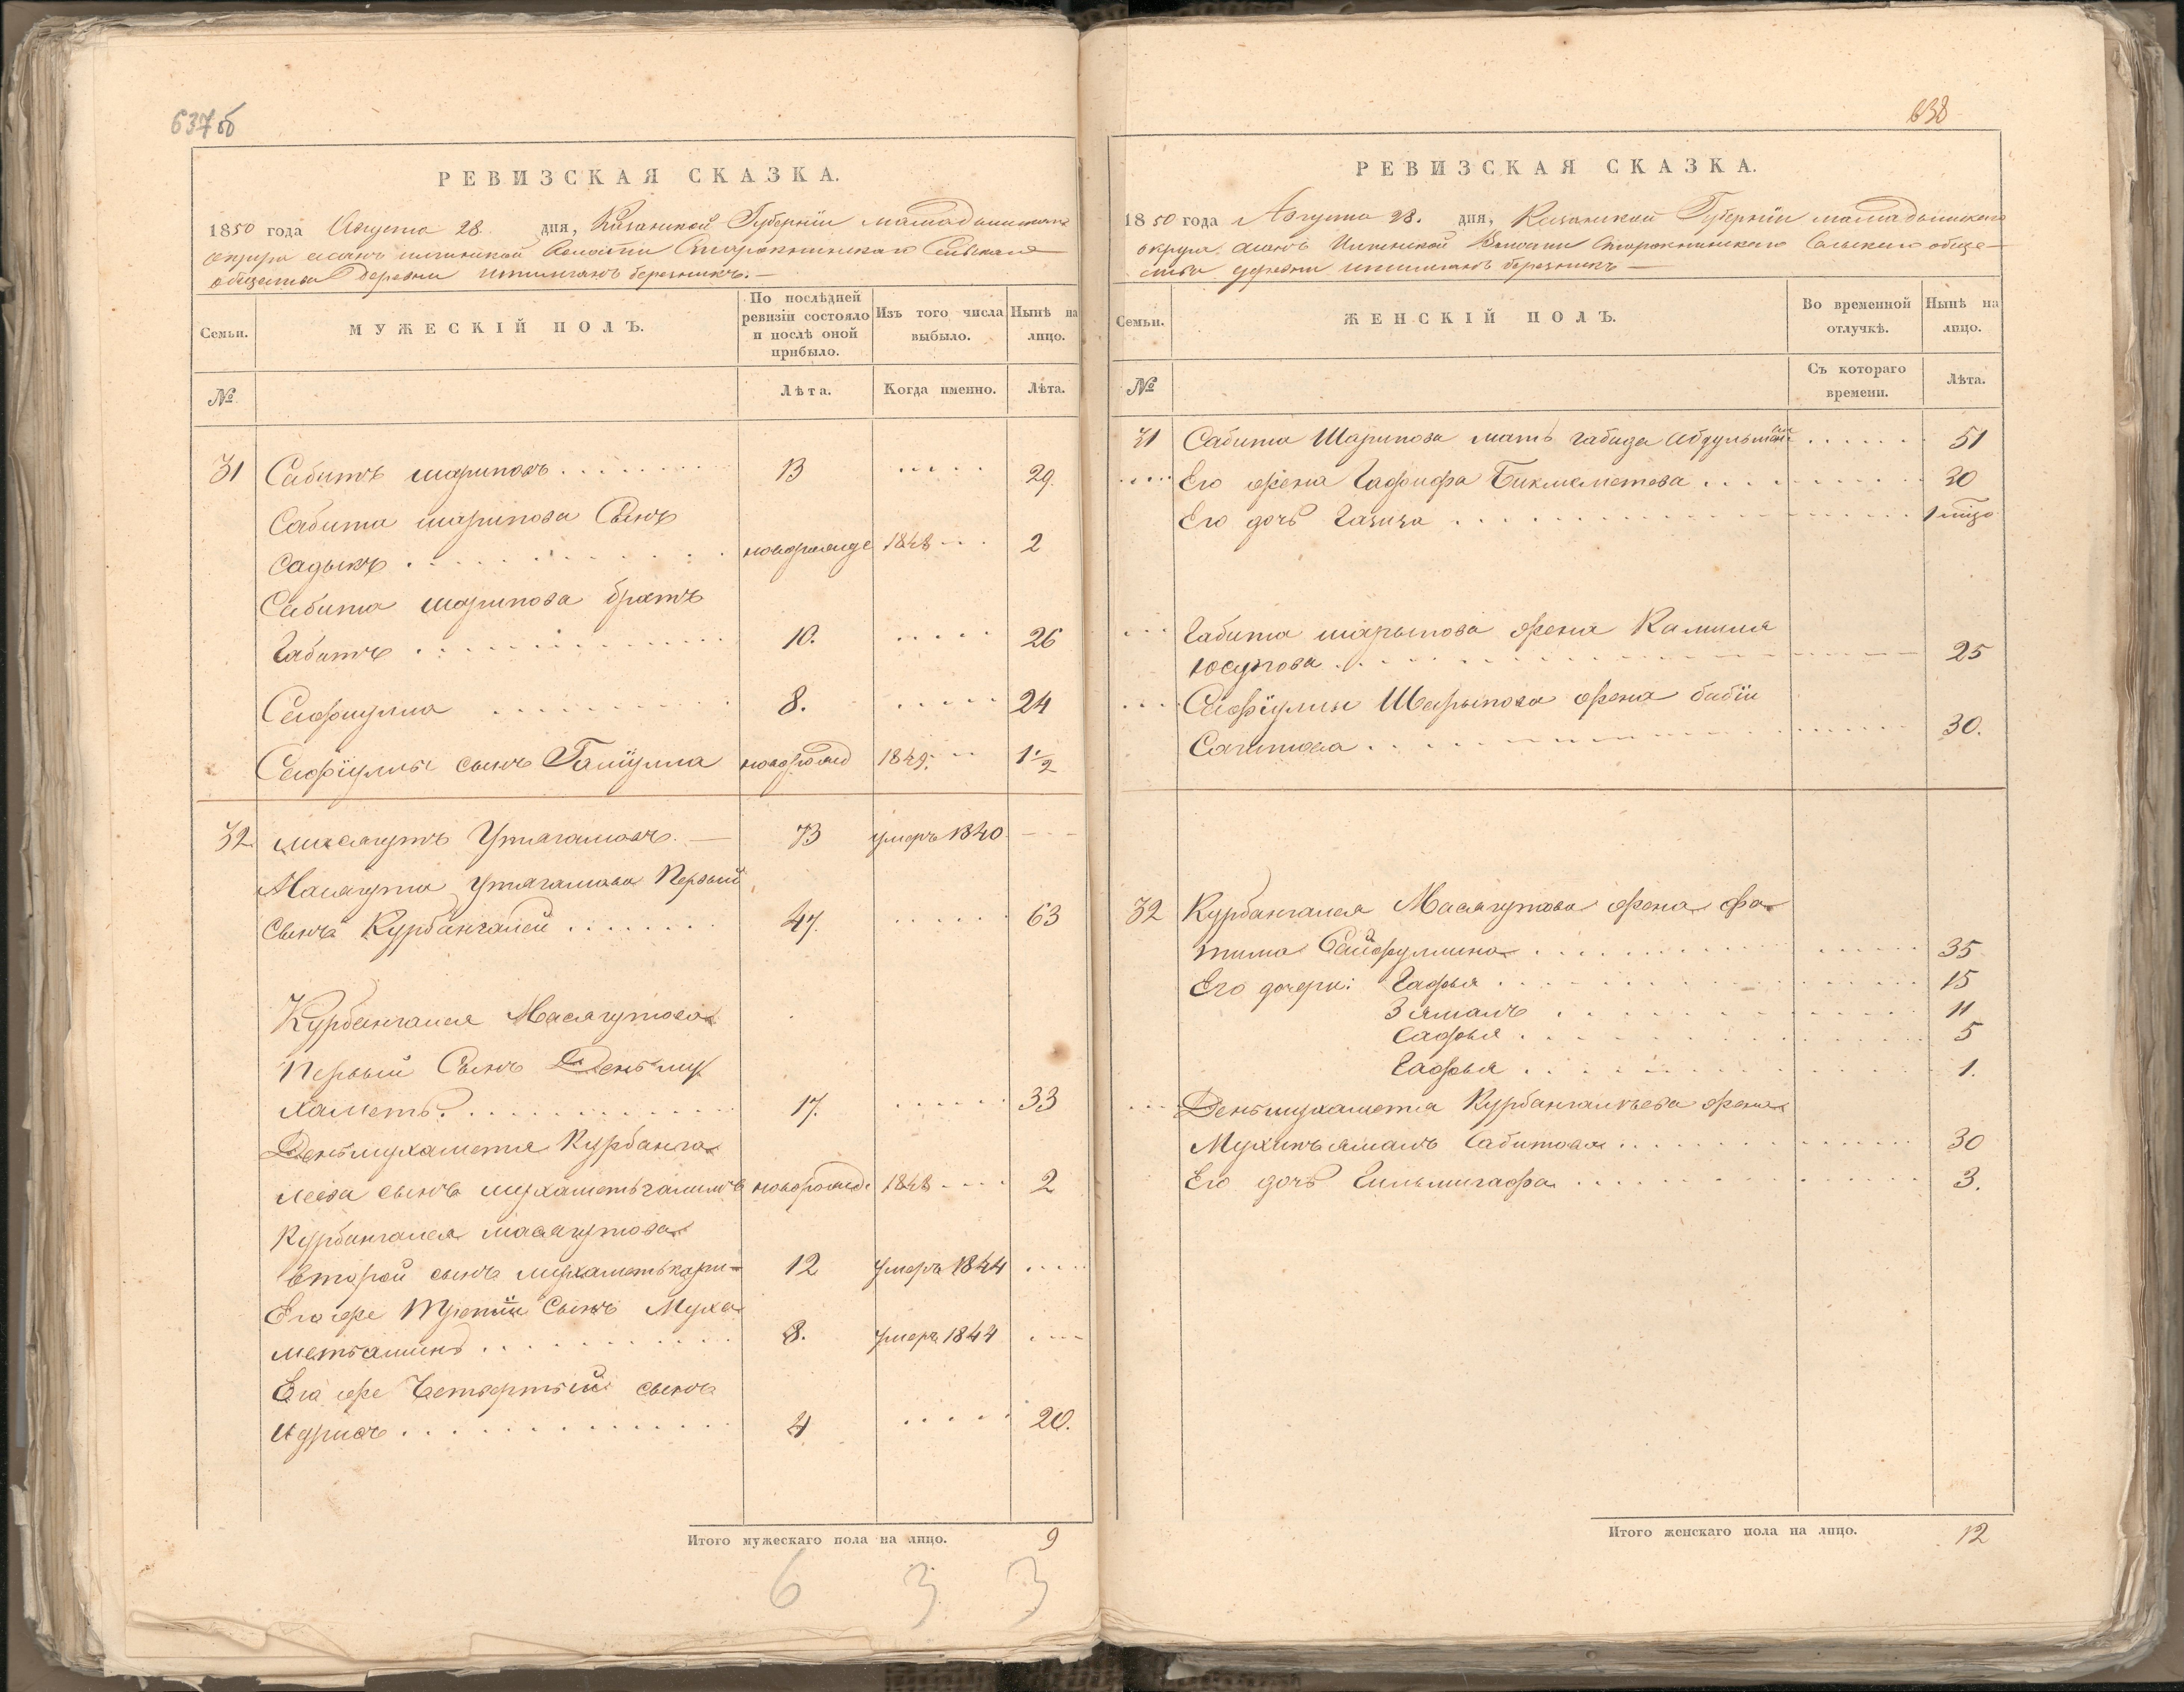 637 об
РЕВИЗСКАЯ СКАЗКА.
1850 года Августа 28 дня, Казанской Губернiи Мамадышскаго
округа Асанъ Илгинской Волости Сельскаго
общества Деревни Ишимганъ березникъ.—
Семьи.
МУЖЕСКIЙ ПОЛЪ.
По послѣдней ревизiи состояло и послѣ оной прибыло.
Изъ того числа выбыло.
Нынѣ на лицо.
№
Лѣта.
Когда именно.
Лѣта.
31 Сабитъ шариповъ . . . . 13 . . . . . 29.
Сабита шарипова Сынъ
Садыкъ . . . . новорожде 1848 - - . 2
Сабита шарипова братъ
Габитъ . . . . 10. . . . . . 26
Сафиулла . . . . 8. . . . . . 24
Сафiуллы сынъ Гатiулла новорожд 1849. - - 1 1/2
32 Масягутъ Утягановъ. — 73 умеръ 1840 - - -
Масягута Утяганова Первый
сынъ Курбангалей . . . . 47. . . . . . 63
Курбангалея Масягутова
Первый Сынъ Деньму
хаметъ. . . . . 17. . . . . . 33
Деньмухаметя Курбанга
леева сынъ мухаметьгалимъ новорожде 1848 - - - - 2
Курбангалея масягутова
второй сынъ мухаметькари- 12 умеръ 1844 . . . .
Его же Третiй Сынъ Муха
метьаминъ . . . . 8. умеръ 1844 . - - -
Его же Четвертый сынъ
Идрисъ . . . . 4 . . . . . 20.
Итого мужескаго пола на лицо. 9
6 3 3
638
РЕВИЗСКАЯ СКАЗКА.
1850 года Августа 28. дня, Казанской Губернiи мамадышскаго
округа Асанъ Илгинской Волости Сельскаго обще—
ства деревни ишимганъ березникъ —
Семьи.
ЖЕНСКIЙ ПОЛЪ.
Во временной отлучкѣ.
Нынѣ на лицо.
№
Съ котораго времени.
Лѣта.
31 Сабита Шарипова мать Габида . . . . . . 51
. . . . Его жена Гафифа Бикмеметева . . . . 30
Его дочь Газиза . . . . 1
. . . Габита шарыпова жена Камиля
Юсупова . . . . 25
. . . Сафiуллы Шарыпова жена бибiи
Сагитова . . . . 30.
32 Курбангалея Масягутова жена Фа
тима Сайфуллина . . . . 35
Его дочери: Гафья . . . . 15
Зямалъ . . . . 11
Сафья . . . . 5
Гафья . . . . 1.
. . . Деньмухаметя Курбангалеева жена
Мухипьямалъ Сабитова . . . . 30
Его дочь Гильмигафа . . . . 3.
Итого женскаго пола на лицо. 12